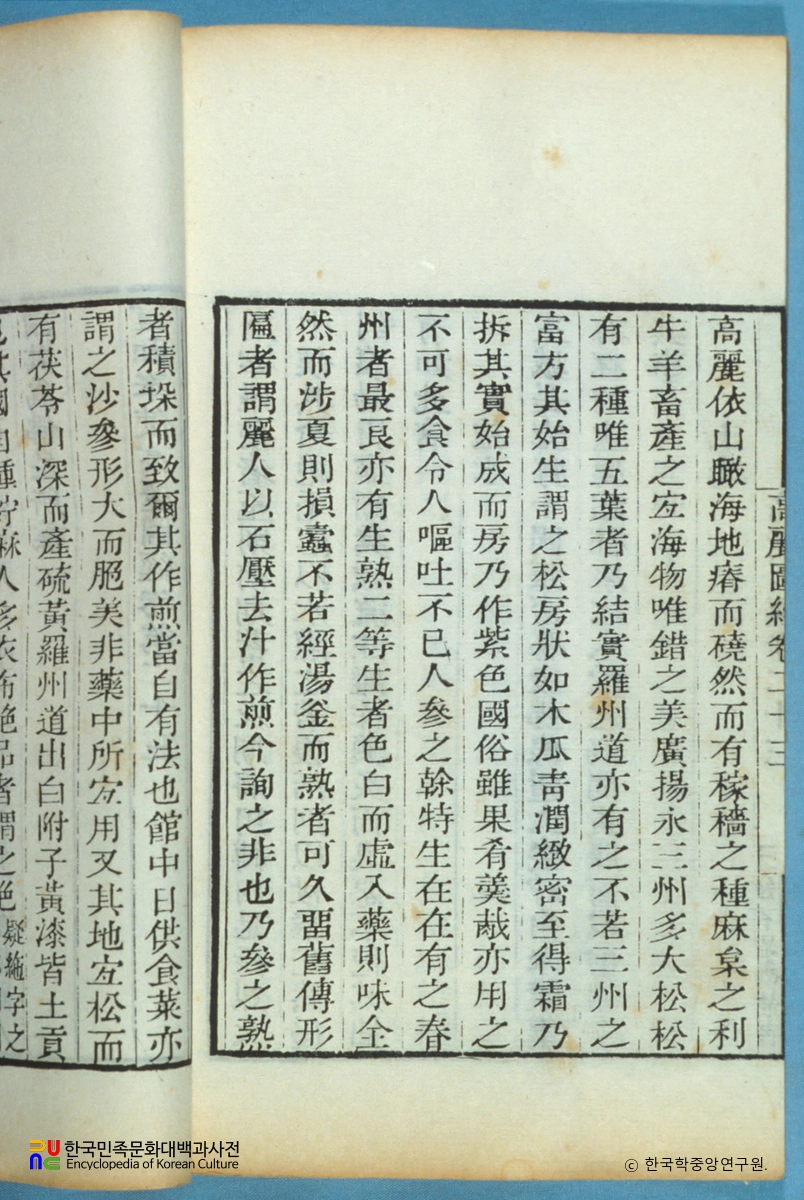 高麗圖經卷二十三
高麗依山瞰海地瘠而磽然而有稼穡之種麻枲之利
牛羊畜產之宐海物唯錯之美廣揚永三州多大松松
有二種唯五葉者乃結實羅州道亦有之不若三州之
富方其始生謂之松房狀如木瓜靑潤緻密至得霜乃
拆其實始成而房乃作紫色國俗雖果肴羮胾亦用之
不可多食令人嘔吐不已人參之榦特生在在有之春
州者最良亦有生熟二等生者色白而虛入藥則味全
然而涉夏則損蠹不若經湯釜而熟者可久畱舊傳形
匾者謂麗人以石壓去汁作煎今詢之非也乃參之熟
者積垜而致爾其作煎當自有法也館中日供食菜亦
謂之沙參形大而脃美非藥中所宐用又其地宐松而
有茯苓山深而產硫黃羅州道出白附子黃漆皆土貢
其國自種紵麻人多衣布絶品者謂之絁
疑絁字之
한국민족문화대백과사전
Encyclopedia of Korean Culture
ⓒ 한국학중앙연구원.